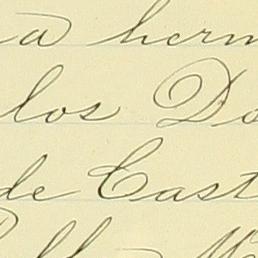 a herm
los Do
de Cast